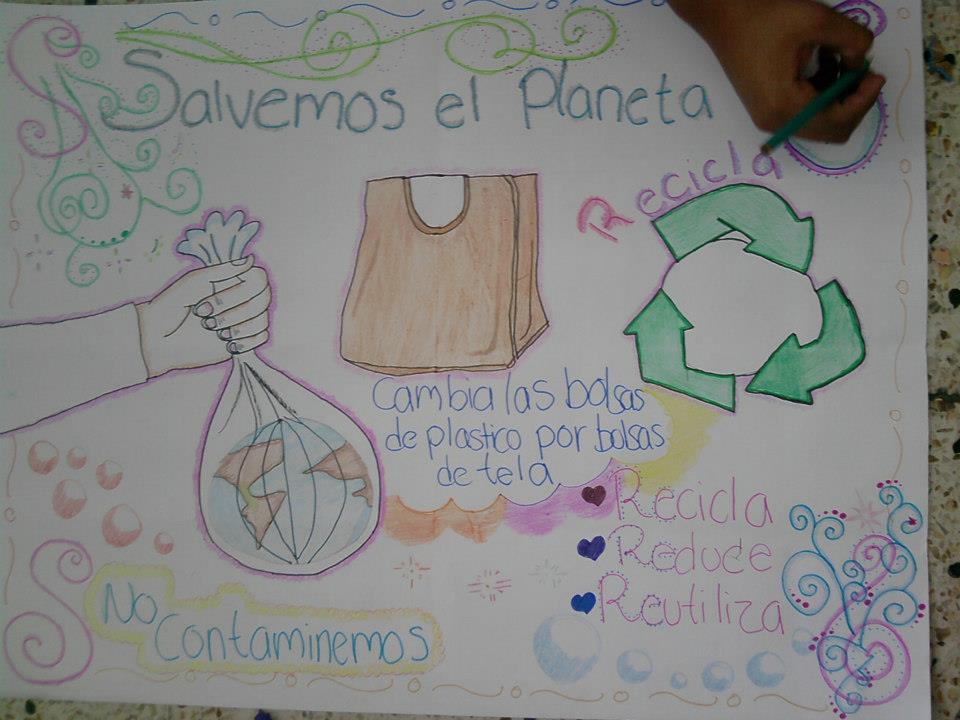 Salvemos el Planeta
Recicla
Cambia las bolsas
de plastico por bolsas
de tela
Recicla
Reduce
Reutiliza
No
Contaminemos